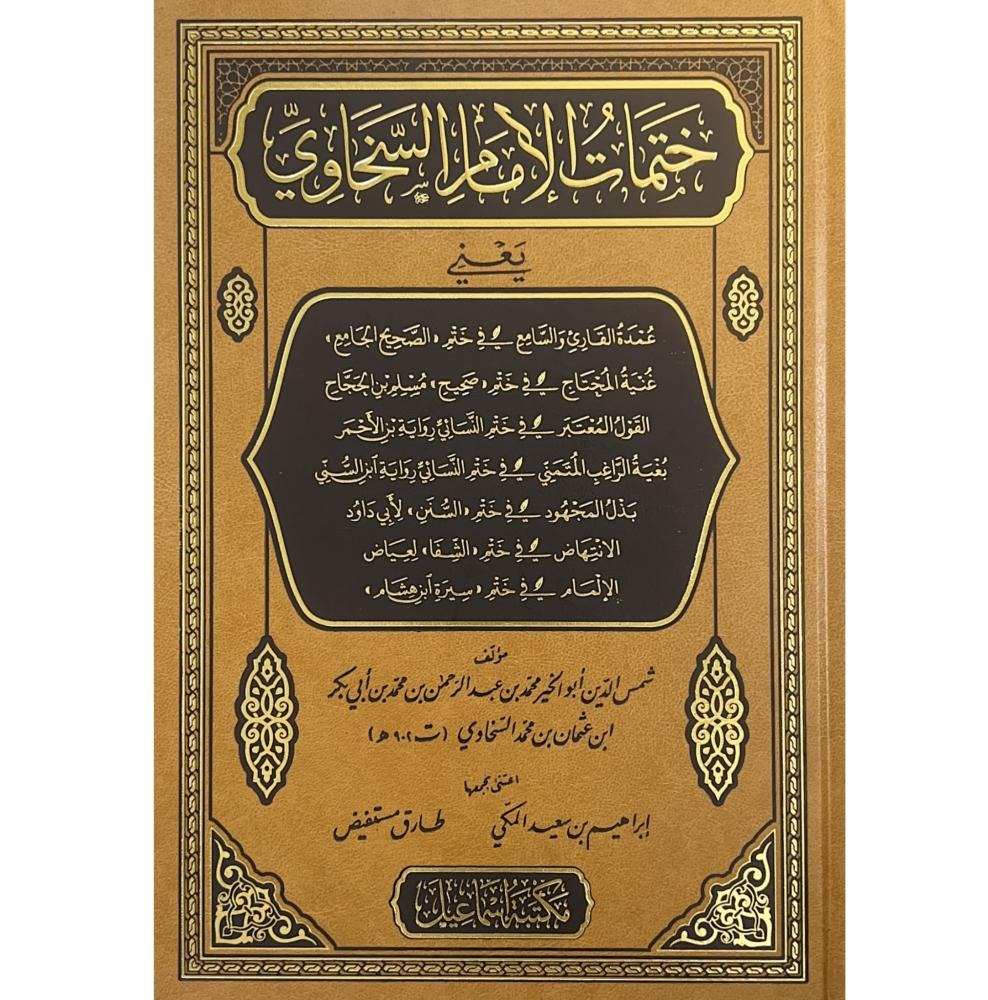 خَتَمَاتُ الإِمَامِ السَّخَاوِيِّ
يَعْنِي
عُمْدَةُ القَارِئِ وَالسَّامِعِ فِي خَتْمِ «الصَّحِيحِ الجَامِعِ»
غُنْيَةُ المُحْتَاجِ فِي خَتْمِ «صَحِيحِ» مُسْلِمِ بْنِ الحَجَّاجِ
القَوْلُ المُعْتَبَر فِي خَتْمِ النَّسَائِيِّ رِوَايَةِ بْنِ الأَحْمَر
بُغْيَةُ الرَّاغِبِ المُتَمَنِّي فِي خَتْمِ النَّسَائِيِّ رِوَايَةِ ابْنِ السُّنِّي
بَذْلُ المَجْهُودِ فِي خَتْمِ «السُّنَنِ» لِأَبِي دَاوُد
الانْتِهَاض فِي خَتْمِ «الشِّفَا» لِعِيَاض
الإِلْمَام فِي خَتْمِ «سِيرَةِ ابْنِ هِشَام»
مؤلف
شمس الدين أبو الخير محمد بن عبد الرحمٰن بن محمد بن أبي بكر
ابن عثمان بن محمد السخاوي (ت ٩٠٢ هـ)
اعتنى بجمعها
إبراهيم بن سعيد المكي طارق مستفيض
مكتبة إسماعيل